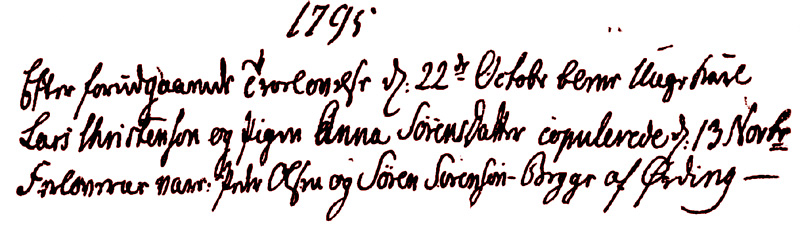 1795
Efter forudgaaende Trolovelse d: 22de Octobr bleve Unge Karl
Lars Christensøn og Pigen Anna Sørensdatter copulerede d: 13 Novbr
Forlovere vare: Peder Olsen og Søren Sørensøn - Begge af Ørding —